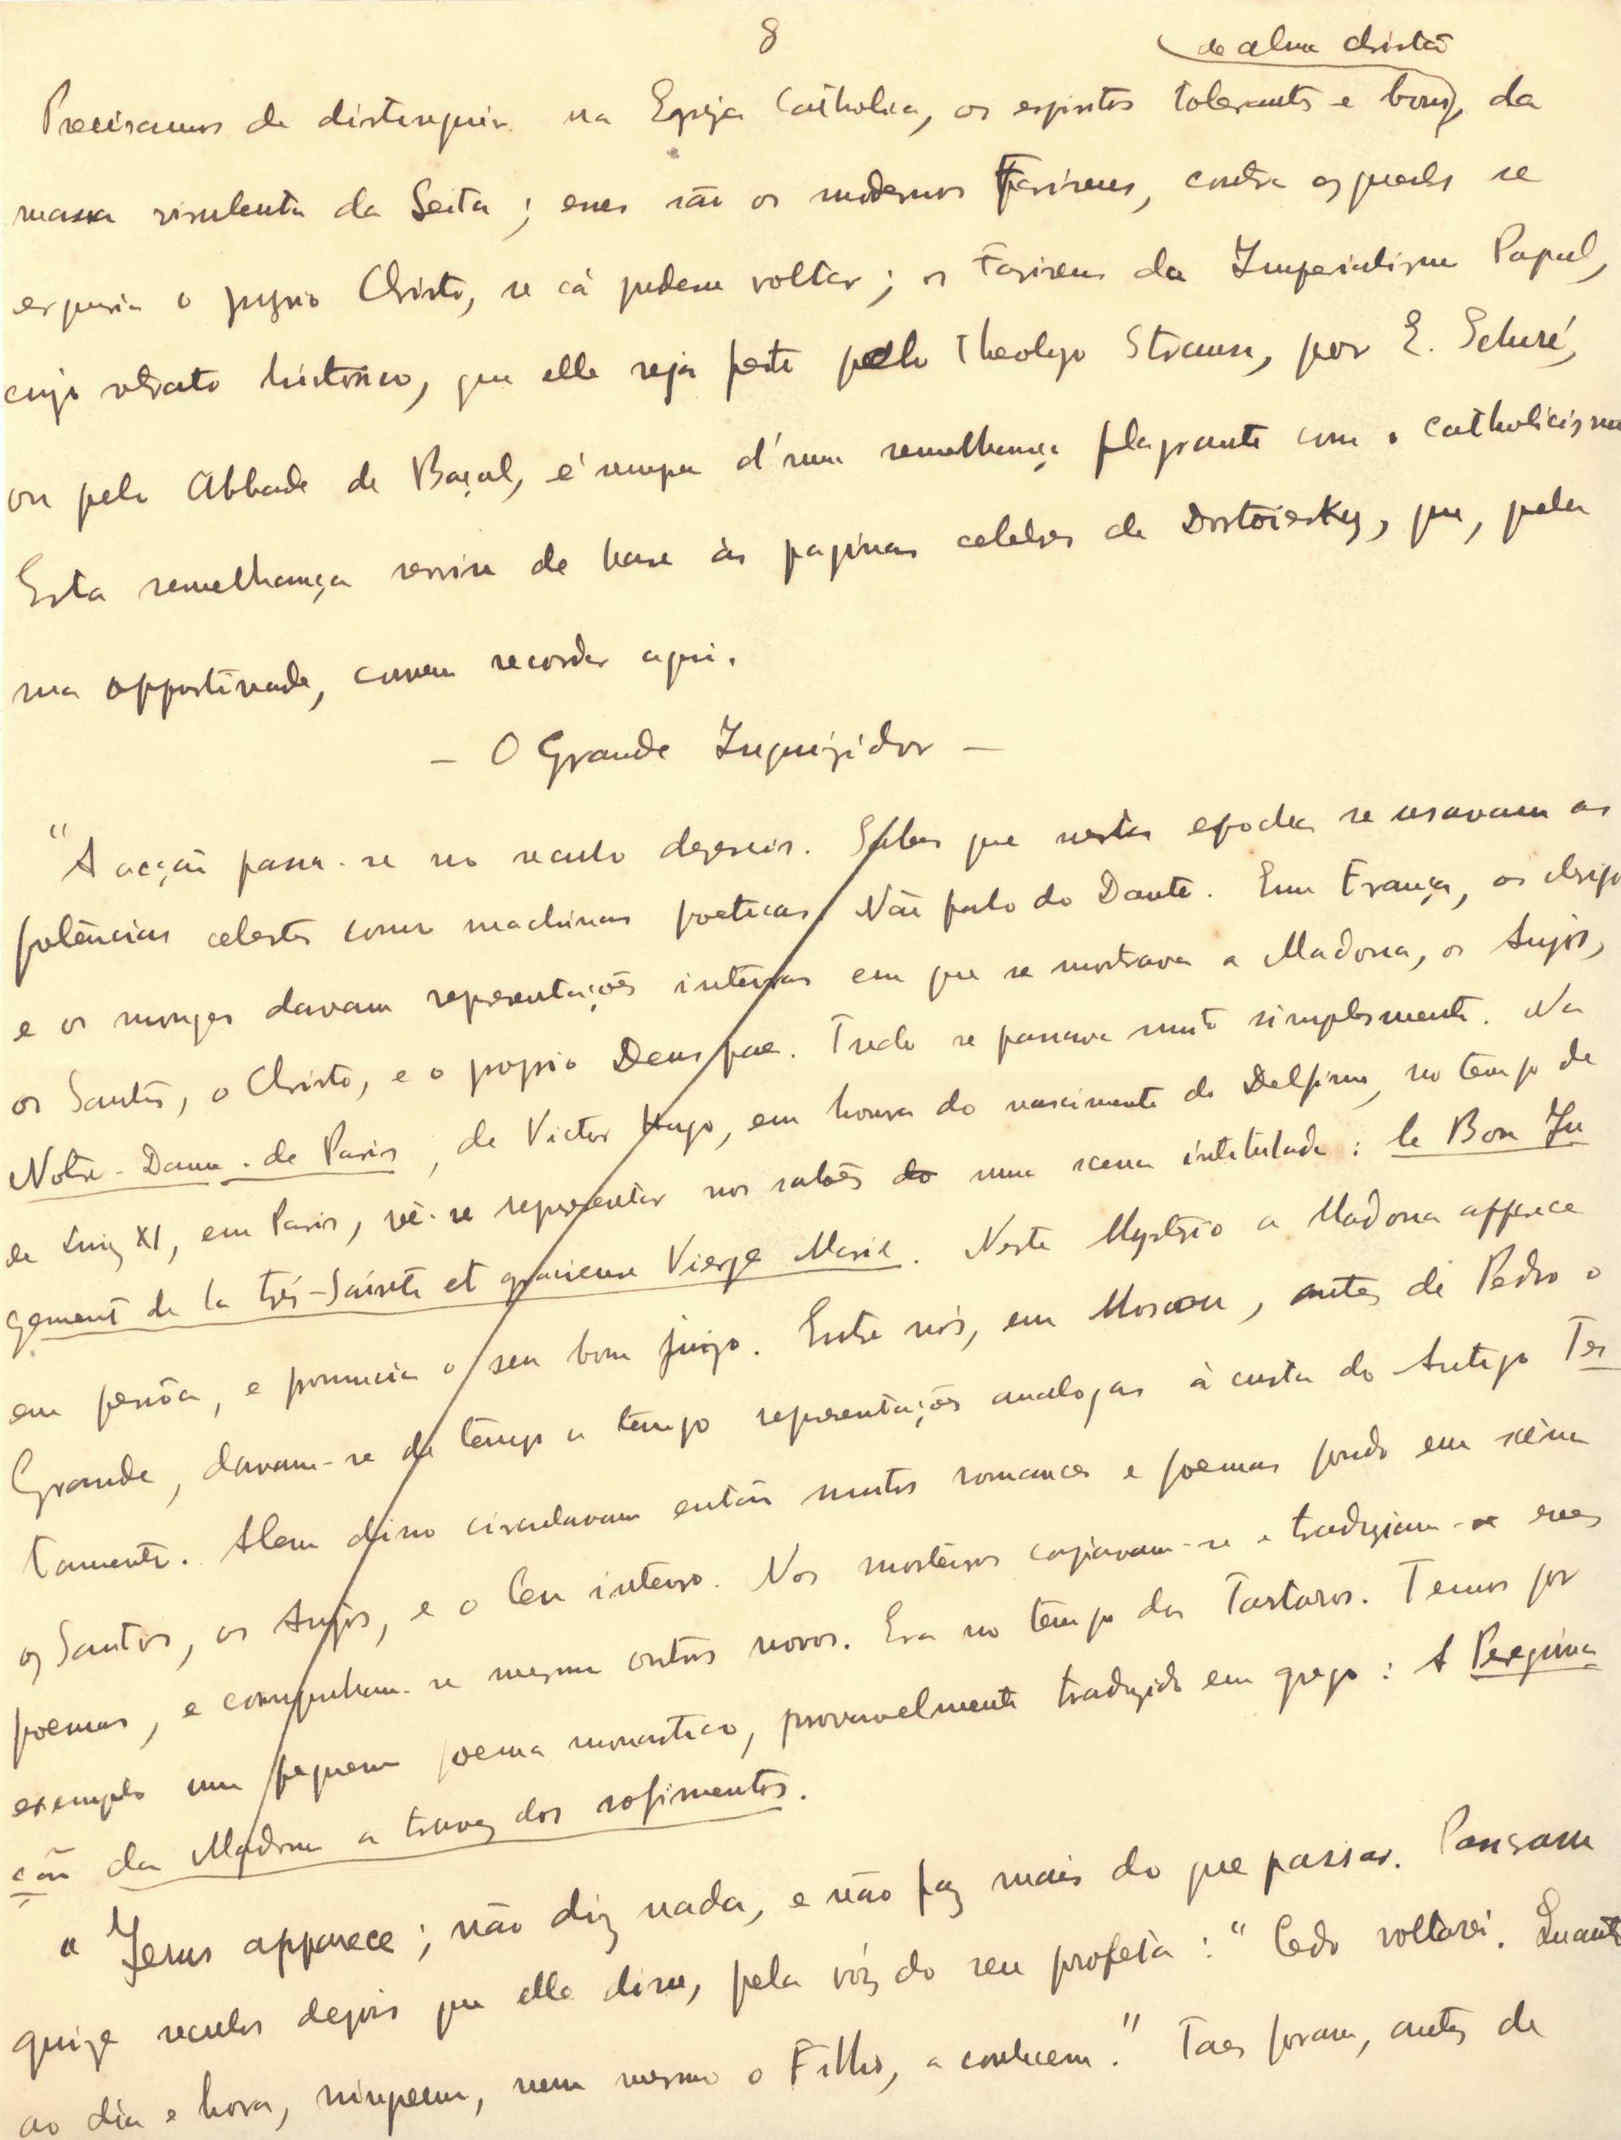 8
de alma christã
Precisamos de distinguir na Egreja Catholica, os espiritos tolerantes e bons, da
massa virulenta da Seita; esses são os modernos Fariseus, contra os quaes se
erguria o proprio Christo, se cá podesse voltar; os Fariseus do Imperialismo Papal,
cujo retrato historico, que elle seja feito pelo Theologo Strauss, por E. Schuré,
ou pelo Abbade de Baçal, é sempre d'uma semelhança flagrante com o catholicismo
Esta semelhança serviu de base ás paginas celebres de Dostoiesky, que, pela
sua opportunidade, convem recordar aqui.
— O Grande Inquizidor —
"A acção passa-se no seculo dezeseis. Sabes que nesta epocha se usavam as
potências celestes como machinas poeticas. Não falo do Dante. Em França, os clerigos
e os monges davam representações inteiras em que se mostrava a Madona, os Anjos,
os Santos, o Christo, e o proprio Deus pae. Tudo se passava muito simplesmente. Na
Notre-Dame-de Paris, de Victor Hugo, em honra do nascimento do Delfim, no tempo de
de Luiz XI, em Paris, vê-se representar nos salões do uma scena intitulada: le Bon Ju
gement de la trés-Sainte et gracieuse Vierge Marie. Neste Mysterio a Madona apparece
em pessôa, e pronuncia o seu bom juizo. Entre nós, em Moscou, antes de Pedro o
Grande, davam-se de tempo a tempo representações analogas à custa do Antigo Tes
tamento. Alem disso circulavam então muitos romances e poemas pondo em scêna
os Santos, os Anjos, e o Ceu inteiro. Nos mosteiros copiavam-se e traduziam-se esses
poemas, e compunham-se mesmo outros novos. Era no tempo dos Tartaros. Temos por
exemplo um pequeno poema monastico, provavelmente traduzido em grego: A Peregrina
ção da Madona a travez dos sofrimentos.
"Jesus apparece; não diz nada, e não faz mais do que passar. Passaram
quize seculos depois que elle disse, pela vóz do seu profeta: "Cedo voltarei. Quanto
ao dia e hora, ninguem, nem mesmo o Filho, a conhecem." Taes foram, antes de